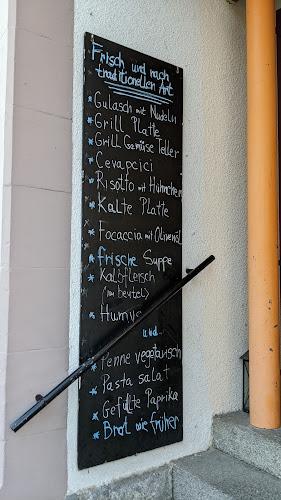 Frisch und nach
traditionellen Art
* Gulasch mit Nudeln
* Grill Platte
* Grill Gemüse Teller
* Cevapcici
* Risotto mit Hühnchen
* Kalte Platte
* Focaccia mit Olivenöl
* frische Suppe
* Kalbfleisch
(im beutel)
* Humus
und...
* Penne vegetarisch
* Pasta salat
* Gefüllte Paprika
* Brot wie früher